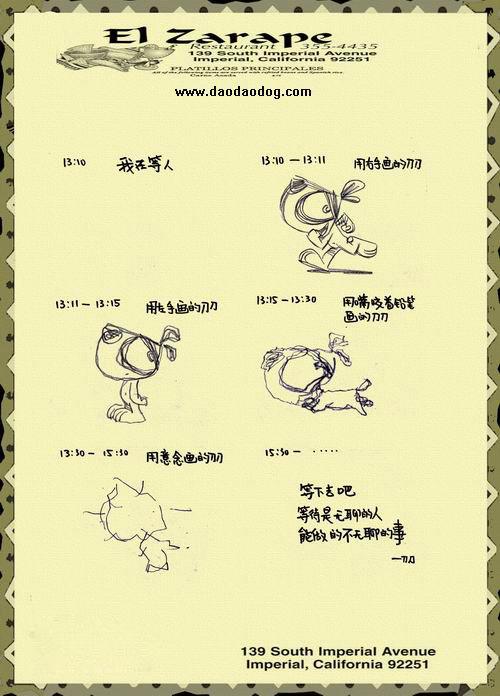 El Zarape
Restaurant 355-4435
139 South Imperial Avenue
Imperial, California 92251
PLATILLOS PRINCIPALES
All of the following items are served with refried beans and Spanish rice.
Carne Asada
www.daodaodog.com
13:10 我在等人
13:10 — 13:11 用右手画的刀刀
13:11 — 13:15 用左手画的刀刀
13:15 — 13:30 用嘴咬着铅笔
画的刀刀
13:30 — 15:30 用意念画的刀刀
15:30 — ·····
等下去吧
等待是无聊的人
能做的不无聊的事
—刀
139 South Imperial Avenue
Imperial, California 92251